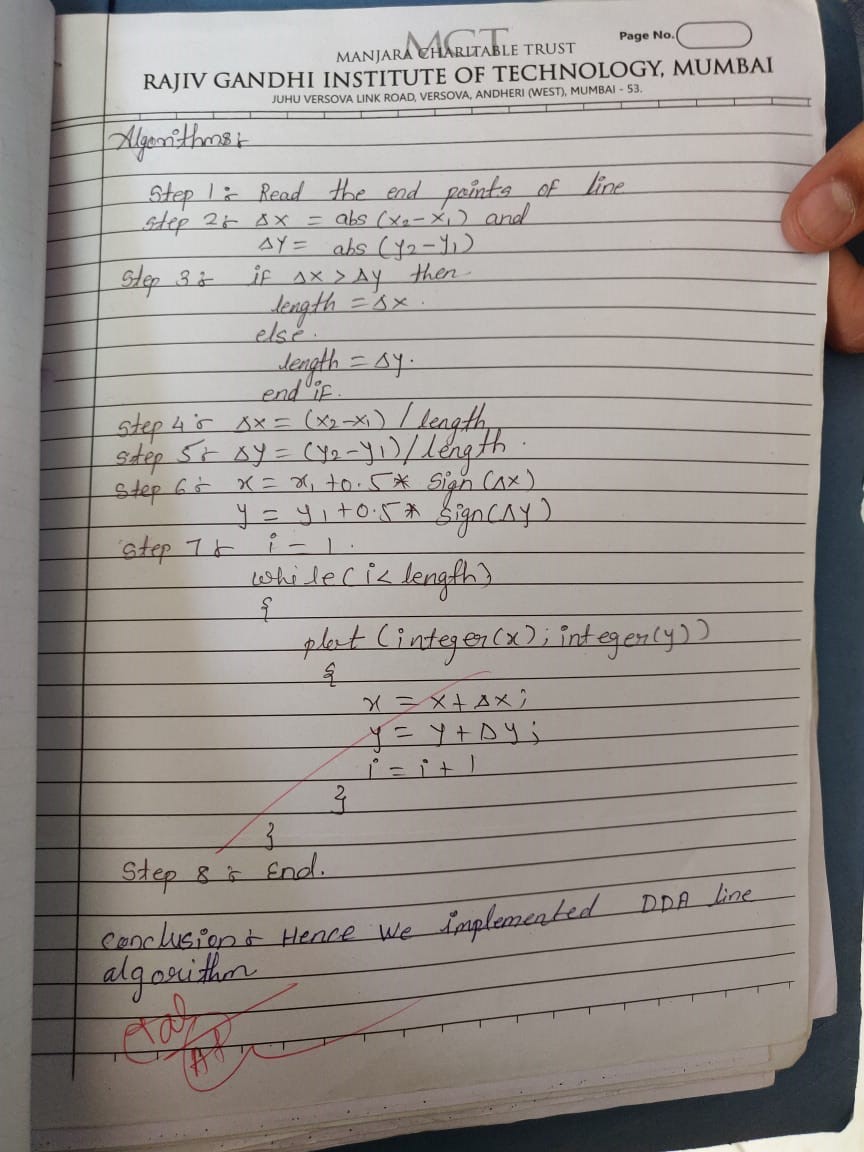 MCT
Page No.
MANJARA CHARITABLE TRUST
RAJIV GANDHI INSTITUTE OF TECHNOLOGY, MUMBAI
JUHU VERSOVA LINK ROAD, VERSOVA, ANDHERI (WEST), MUMBAI - 53.
Algorithms:
Step 1: Read the end points of line
Step 2: Δx = abs (x2-x1) and
ΔY = abs (y2-y1)
Step 3: if Δx > Δy then
length = Δx.
else.
length = Δy.
end if.
Step 4: Δx = (x2-x1) / length
Step 5: Δy = (y2-y1) / length.
Step 6: x = x1 + 0.5 * Sign (Δx)
y = y1 + 0.5 * Sign (Δy)
Step 7: i = 1.
while (i < length)
{
plot (integer(x); integer(y))
{
x = x + Δx;
y = y + Δy;
i = i + 1
}
}
Step 8: End.
Conclusion: Hence We implemented DDA line
algorithm